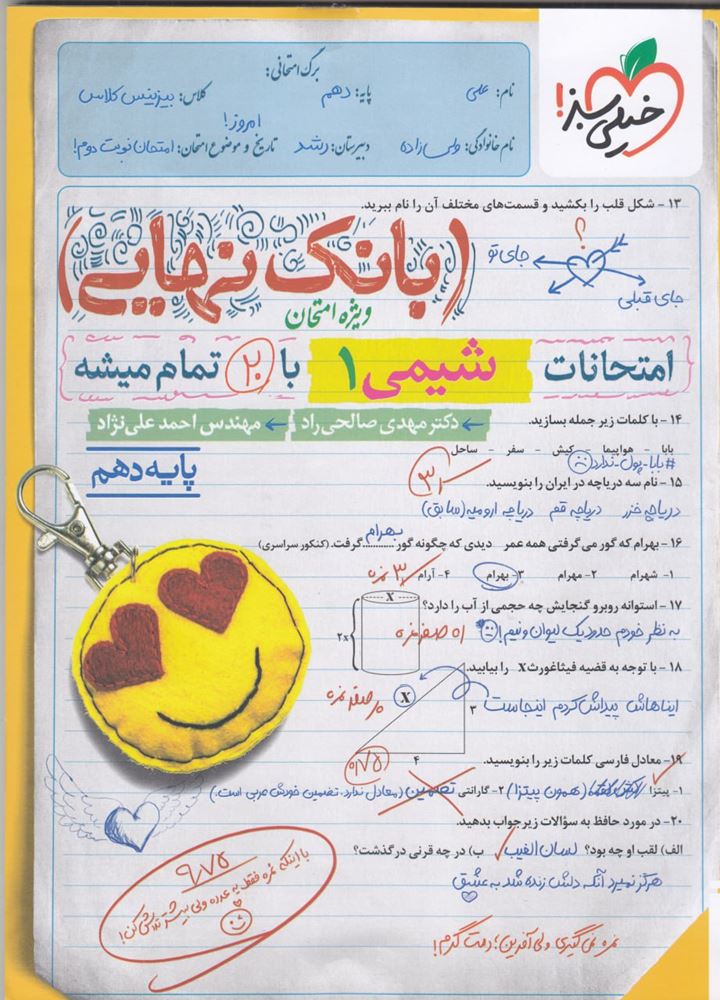 خیلی سبز!
برگ امتحانی:
نام: علی پایه: دهم کلاس: بیزینس کلاس
امروز!
نام خانوادگی: ولی‌زاده دبیرستان: رشد تاریخ و موضوع امتحان: امتحان نوبت دوم!
۱۳ - شکل قلب را بکشید و قسمت‌های مختلف آن را نام ببرید.
؟
جای تو
جای قبلی
(بانک نهایی)
ویژه امتحان
امتحانات شیمی ۱ با ۲۰ تمام میشه
۱۴ - با کلمات زیر جمله بسازید.
دکتر مهدی صالحی‌راد مهندس احمد علی‌نژاد
بابا - هواپیما - کیش - سفر - ساحل
#بابا-پول-ندارد
پایه دهم
۱۵ - نام سه دریاچه در ایران را بنویسید.
دریاچه خزر دریاچه قم دریاچه ارومیه (سابق)
۱۶ - بهرام که گور می‌گرفتی همه عمر دیدی که چگونه گور بهرام گرفت. (کنکور سراسری)
۱- شهرام ۲- مهرام ۳- بهرام ۴- آرام
۱۷ - استوانه روبرو گنجایش چه حجمی از آب را دارد؟
X
۲x
به نظر خودم حدود یک لیوان و نیم!
۱۸ - با توجه به قضیه فیثاغورث X را بیابید.
X
۳
۴
ایناهاش پیداش کردم اینجاست
۱۹- معادل فارسی کلمات زیر را بنویسید.
۱- پیتزا (همون پیتزا) ۲- گارانتی تضمین (معادل ندارد. تضمین خودش عربی است.)
۲۰- در مورد حافظ به سؤالات زیر جواب بدهید.
الف) لقب او چه بود؟ لسان الغیب ب) در چه قرنی در گذشت؟
هرگز نمیرد آنکه دلش زنده شد به عشق
۹/۷۵
با اینکه نمره فقط یه عدده ولی بیشتر تلاش کن!
نمره نمی‌گیری ولی آفرین؛ دمت گرم!